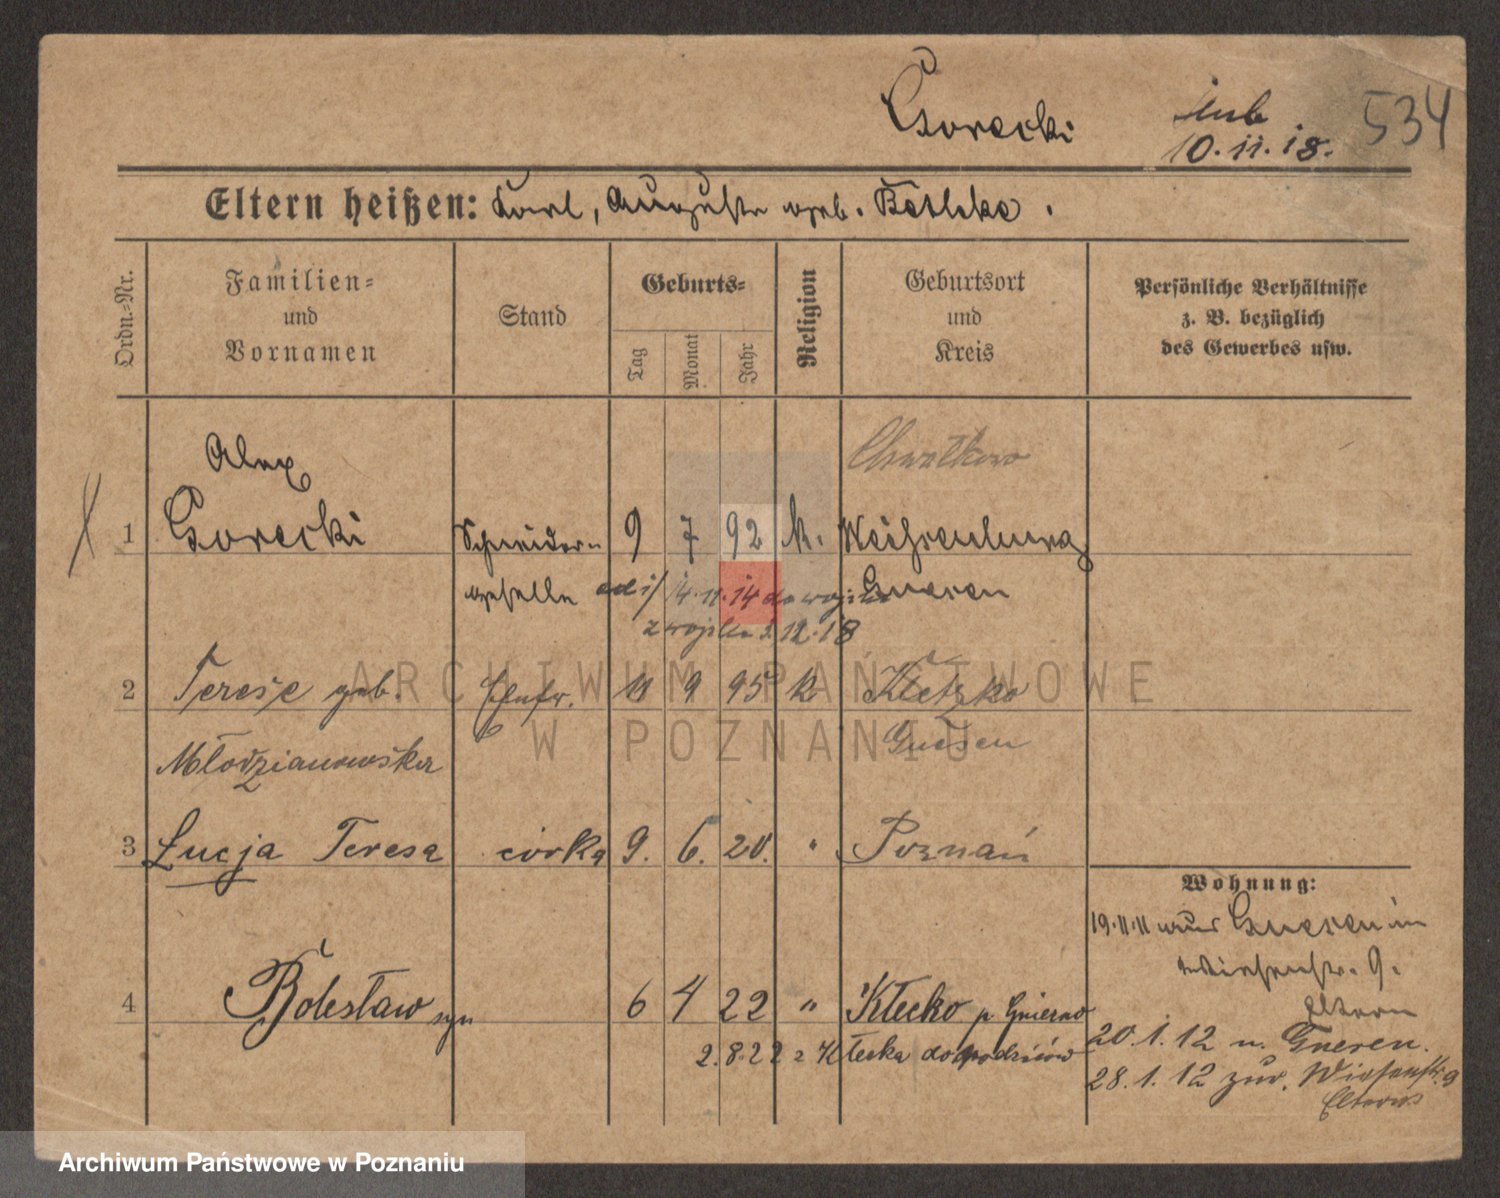 Gorecki
10.11.18.
534
Eltern heißen: Karl, Auguste geb. Bethke.
Ordn.-Nr.
Familien- und Vornamen
Stand
Geburts-
Tag
Monat
Jahr
Religion
Geburtsort und Kreis
Persönliche Verhältnisse
z. B. bezüglich
des Gewerbes usw.
Alex
Chwałkowo
1 Gorecki Schneider- 9 7 92 k. Weißenburg
geselle 14.11.14 do wojska Gnesen
z wojska 2.12.18
2 Terese geb. Ehefr. 11 9 95 k Kletzko
Młodzianowska Gnesen
3 Lucja Teresa córka 9. 6. 20. " Poznań
Wohnung:
19.11.11 von Gnesen in
Wiesenstr. 9.
Eltern
4 Bolesław syn 6 4 22 " Kłecko p. Gniezno
2.8.22 z Kłecka do rodziców
20.1.12 n. Gnesen.
28.1.12 zur. Wiesenstr. 9
Eltern
ARCHIWUM PAŃSTWOWE
W POZNANIU
Archiwum Państwowe w Poznaniu